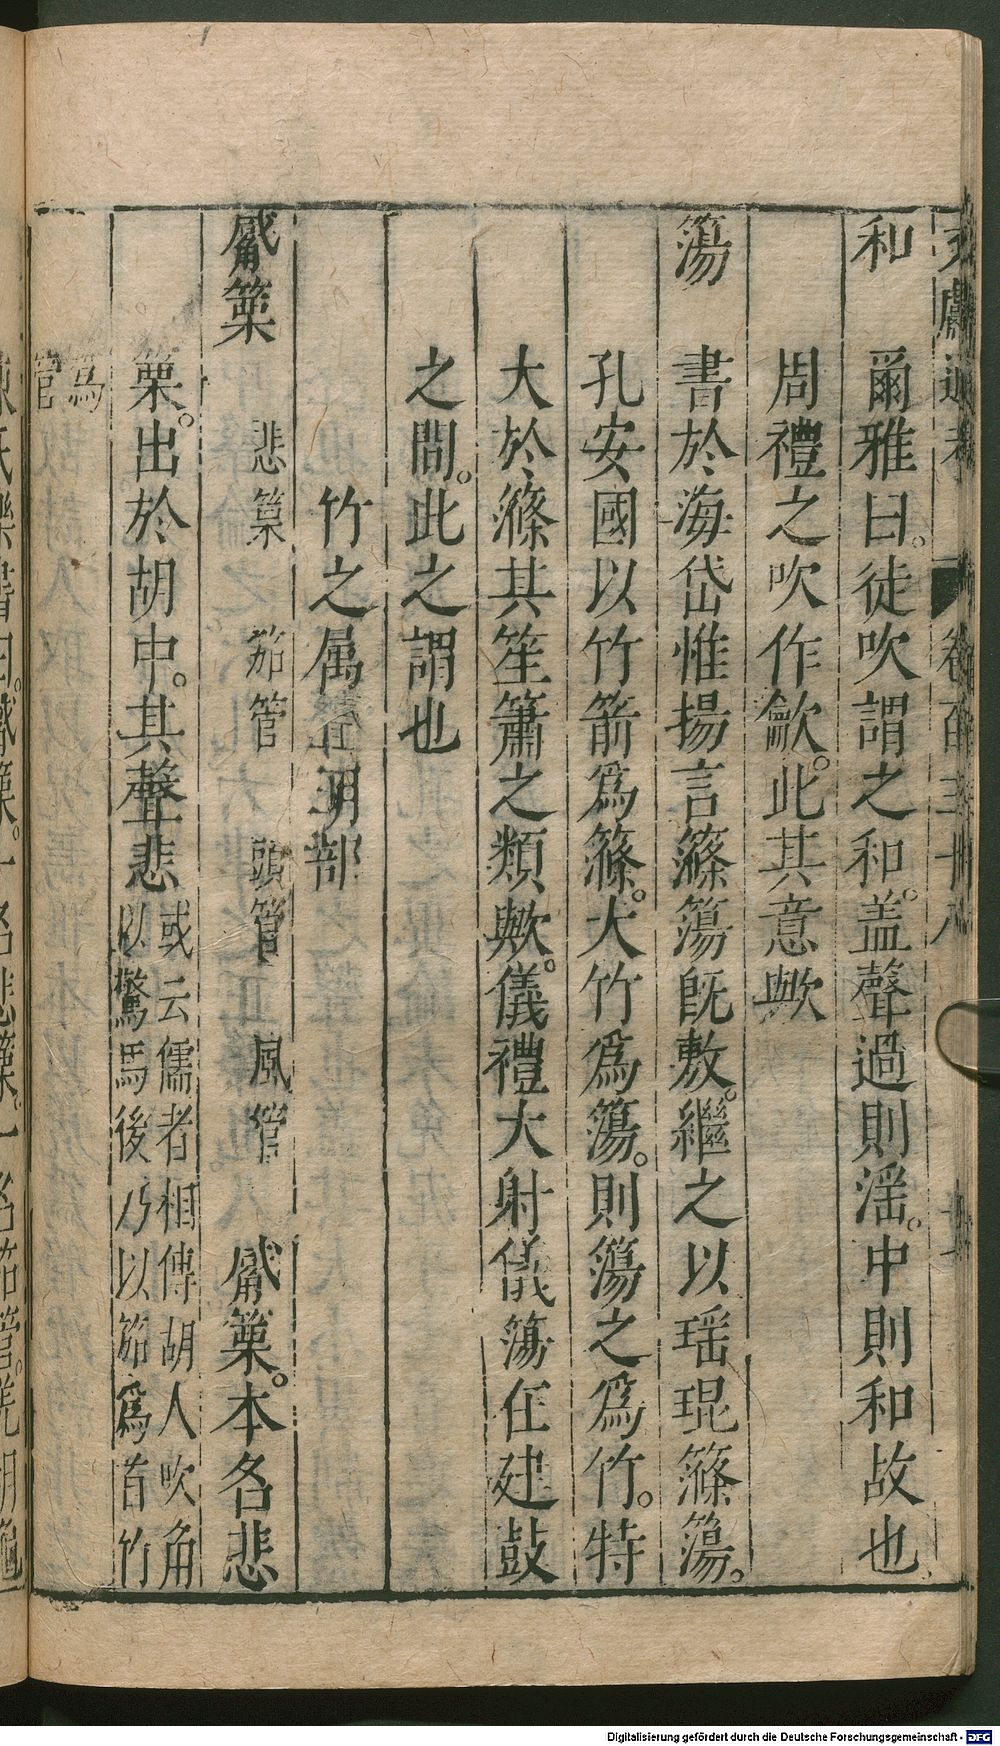 和
爾雅曰。徒吹謂之和。盖聲過則淫。中則和故也
周禮之吹作龡。此其意歟
簜
書於海岱惟揚言篠簜旣敷。繼之以瑶琨篠簜。
孔安國以竹箭爲篠。大竹爲簜。則簜之爲竹。特
大於篠其笙簫之類歟。儀禮大射儀簜在建鼓
之間。此之謂也
竹之属
部
觱篥 悲篥 笳管 頭管 風管 觱篥。本名悲
篥。出於胡中。其聲悲或云儒者相傳胡人吹角
以驚馬後乃以笳爲首竹
爲
管
Digitalisierung gefördert durch die Deutsche Forschungsgemeinschaft - DFG